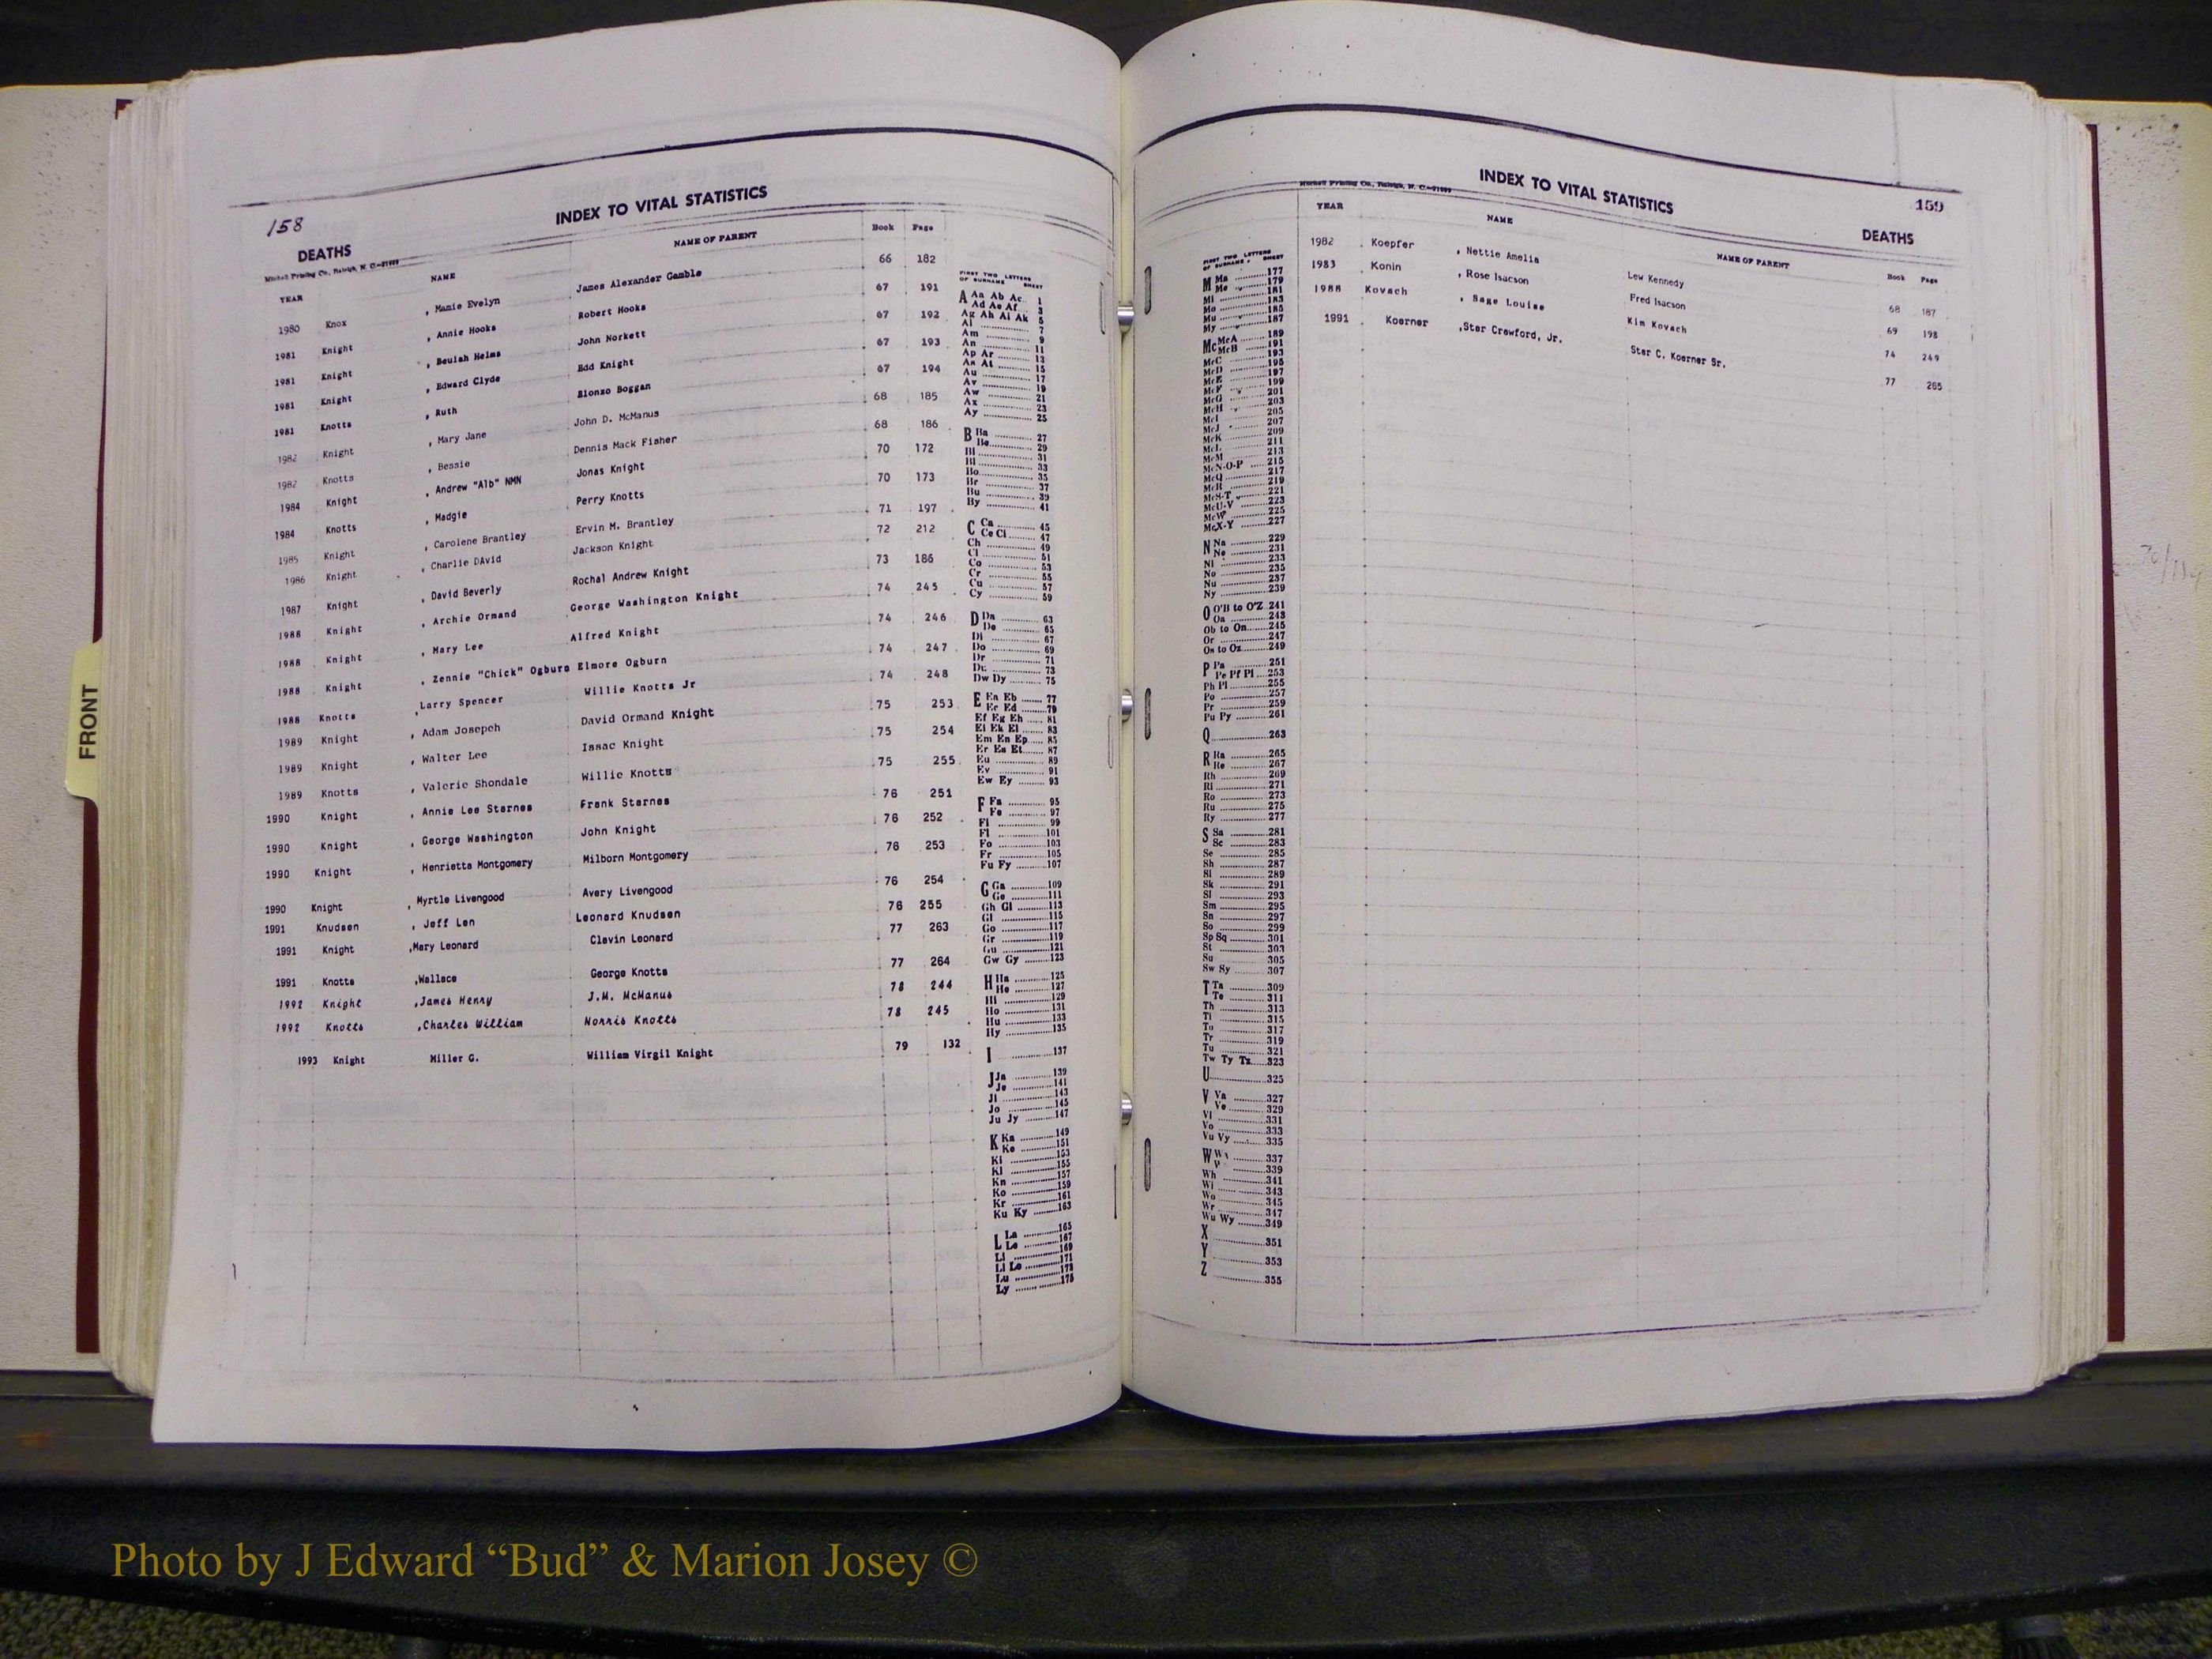 158
INDEX TO VITAL STATISTICS
DEATHS
Mitchell Printing Co., Raleigh, N. C.
YEAR NAME NAME OF PARENT Book Page
1980 Knox , Mamie Evelyn James Alexander Gamble 66 182
1981 Knight , Annie Hooks Robert Hooks 67 191
1981 Knight , Beulah Helms John Norkett 67 192
1981 Knight , Edward Clyde Edd Knight 67 193
1981 Knotts , Ruth Blonzo Boggan 67 194
1982 Knight , Mary Jane John D. McManus 68 185
1982 Knotts , Bessie Dennis Mack Fisher 68 186
1984 Knight , Andrew "Alb" NMN Jonas Knight 70 172
1984 Knotts , Madgie Perry Knotts 70 173
1985 Knight , Carolene Brantley Ervin M. Brantley 71 197
1986 Knight , Charlie DAvid Jackson Knight 72 212
1987 Knight , David Beverly Rochal Andrew Knight 73 186
1988 Knight , Archie Ormand George Washington Knight 74 245
1988 Knight , Mary Lee Alfred Knight 74 246
1988 Knight , Zennie "Chick" Ogburn Elmore Ogburn 74 247
1988 Knotts , Larry Spencer Willie Knotts Jr 74 248
1989 Knight , Adam Josepeh David Ormand Knight 75 253
1989 Knight , Walter Lee Issac Knight 75 254
1989 Knotts , Valerie Shondale Willie Knotts 75 255
1990 Knight , Annie Lee Starnes Frank Starnes 76 251
1990 Knight , George Washington John Knight 76 252
1990 Knight , Henrietta Montgomery Milborn Montgomery 76 253
1990 Knight , Myrtle Livengood Avery Livengood 76 254
1991 Knudsen , Jeff Len Leonard Knudsen 76 255
1991 Knight ,Mary Leonard Clavin Leonard 77 263
1991 Knotts ,Wallace George Knotts 77 264
1992 Knight ,James Henry J.M. McManus 78 244
1992 Knotts ,Charles William Norris Knotts 78 245
1993 Knight Miller G. William Virgil Knight 79 132
FIRST TWO LETTERS OF SURNAME SHEET
A Aa Ab Ac 1
Ad Ae Af 3
Ag Ah Ai Ak 5
Al 7
Am 9
An 11
Ap Ar 13
As At 15
Au 17
Av 19
Aw 21
Ax 23
Ay 25
B Ba 27
Be 29
Bi 31
Bl 33
Bo 35
Br 37
Bu 39
By 41
C Ca 45
Ce Ci 47
Ch 49
Cl 51
Co 53
Cr 55
Cu 57
Cy 59
D Da 63
De 65
Di 67
Do 69
Dr 71
Du 73
Dw Dy 75
E Ea Eb 77
Ec Ed 79
Ef Eg Eh 81
Ei Ek El 83
Em En Ep 85
Er Es Et 87
Eu 89
Ev 91
Ew Ey 93
F Fa 95
Fe 97
Fi 99
Fl 101
Fo 103
Fr 105
Fu Fy 107
G Ga 109
Ge 111
Gh Gi 113
Gl 115
Go 117
Gr 119
Gu 121
Gw Gy 123
H Ha 125
He 127
Hi 129
Ho 131
Hu 133
Hy 135
I 137
J Ja 139
Je 141
Ji 143
Jo 145
Ju Jy 147
K Ka 149
Ke 151
Ki 153
Kl 155
Kn 157
Ko 159
Kr 161
Ku Ky 163
L La 165
Le 167
Li 169
Ll Lo 171
Lu 173
Ly 175
INDEX TO VITAL STATISTICS
159
Mitchell Printing Co., Raleigh, N. C.
DEATHS
YEAR NAME NAME OF PARENT Book Page
1982 Koepfer , Nettie Amelia Lew Kennedy 68 187
1983 Konin , Rose Isacson Fred Isacson 69 198
1988 Kovach , Sage Louise Kim Kovach 74 249
1991 Koerner ,Star Crawford, Jr. Star C. Koerner Sr. 77 265
FIRST TWO LETTERS OF SURNAME SHEET
M Ma 177
Me 179
Mi 181
Mo 183
Mu 185
My 187
Mc McA 189
McB 191
McC 193
McD 195
McE 197
McF 199
McG 201
McH 203
McI 205
McJ 207
McK 209
McL 211
McM 213
McN-O-P 215
McQ 217
McR 219
McS-T 221
McU-V 223
McW 225
McX-Y 227
N Na 229
Ne 231
Ni 233
No 235
Nu 237
Ny 239
O O'B to O'Z 241
Oa 243
Ob to On 245
Or 247
Os to Oz 249
P Pa 251
Pe Pf Pl 253
Ph Pi 255
Po 257
Pr 259
Pu Py 261
Q 263
R Ra 265
Re 267
Rh 269
Ri 271
Ro 273
Ru 275
Ry 277
S Sa 281
Sc 283
Se 285
Sh 287
Si 289
Sk 291
Sl 293
Sm 295
Sn 297
So 299
Sp Sq 301
St 303
Su 305
Sw Sy 307
T Ta 309
Te 311
Th 313
Ti 315
To 317
Tr 319
Tu 321
Tw Ty Tz 323
U 325
V Va 327
Ve 329
Vi 331
Vo 333
Vu Vy 335
W Wa 337
339
Wh 341
Wi 343
Wo 345
Wr 347
Wu Wy 349
X 351
Y 353
Z 355
FRONT
Photo by J Edward “Bud” & Marion Josey ©